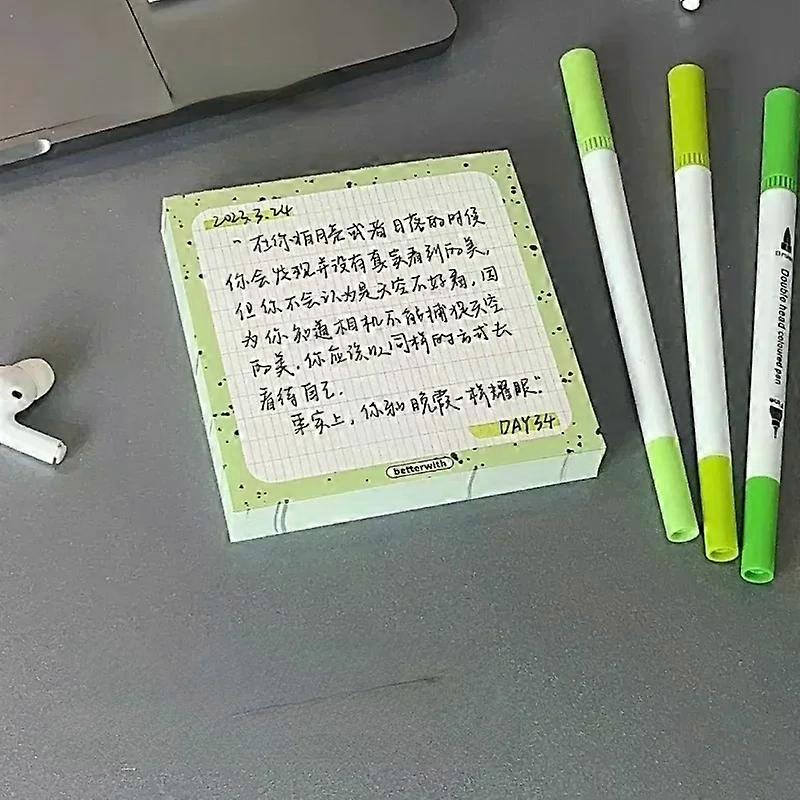 2023.3.24
“在你拍月亮或者日落的时候
你会发现并没有真实看到的美,
但你不会认为是天空不好看,因
为你知道相机不能捕捉天空
的美.你应该以同样的方式去
看待自己.
事实上,你和晚霞一样耀眼.”
DAY34
betterwith
Double head coloured pen